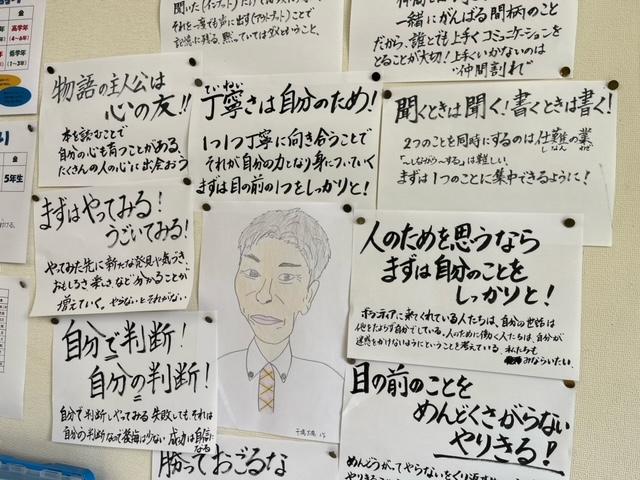 金
高学年
(4~6年)
低学年
(1~3年)
金
5年生
それを一度でも声に出す(アウトプット)ことで
記憶に残る。黙っていてはダメということ。
一緒にがんばる間柄のこと
だから、誰とでも上手くコミュニケーションを
とることが大切!上手くいかないのは
"仲間割れ"
物語の主人公は
心の友!!
本を読むことで
自分の心も育つことがある、
たくさんの人の心に出会おう
ていねい
丁寧さは自分のため!
1つ1つ丁寧に向き合うことで
それが自分の力となり身についていく
まずは目の前の1つをしっかりと!
聞くときは聞く!書くときは書く!
2つのことを同時にするのは、至難の業
しなん わざ
「~しながら~する」は難しい。
まずは1つのことに集中できるように!
まずはやってみる!
うごいてみる!
やってみた先に新たな発見や気づき、
おもしろさ楽しさなど分かることが
増えていく。やらないとそれがない
人のためを思うなら
まずは自分のことを
しっかりと!
ボランティアに来てくれている人たちは、自分の世話は
他をたよらず自分でしている。人のために働く人たちは、自分が
迷惑をかけないようにということを考えている。私たちも
みならいたい。
自分で判断!
自分の判断!
自分で判断しやってみる 失敗しても、それは
自分の判断なので後悔は少ない 成功は自信に
なる
目の前のことを
めんどくさがらない
やりきる!
めんどうがってやらないをくり返す
勝っておごるな